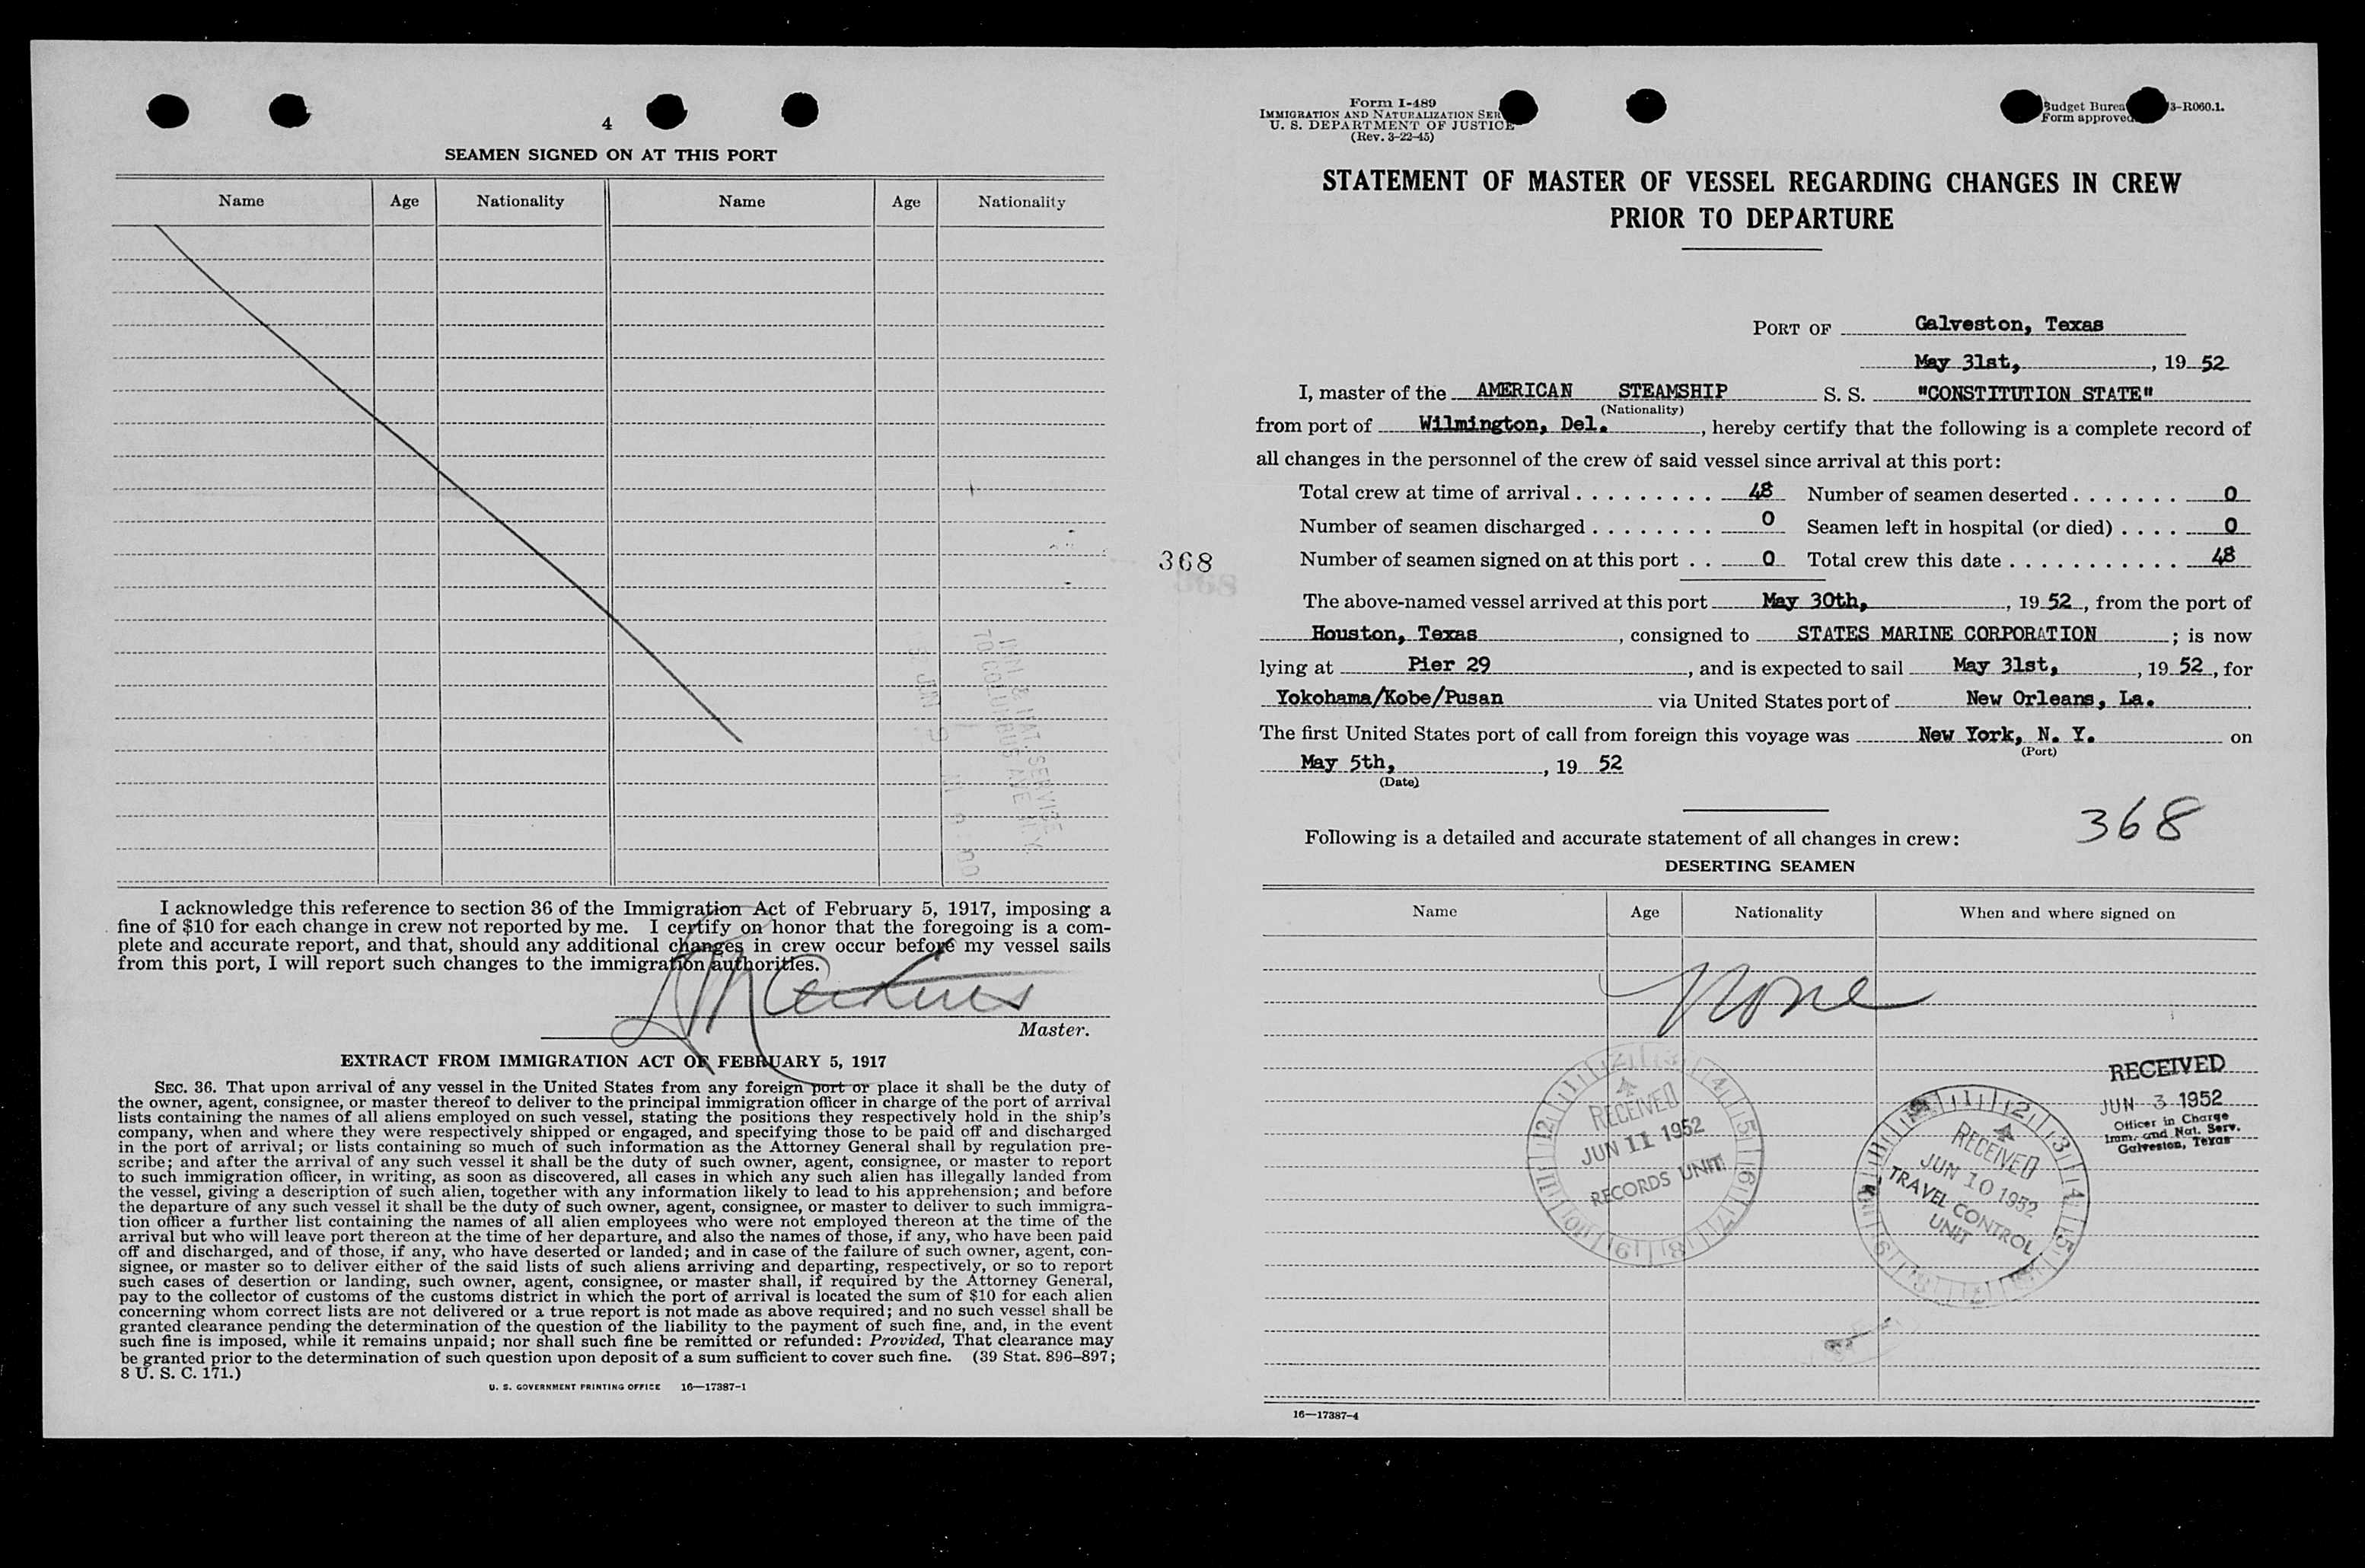 4
SEAMEN SIGNED ON AT THIS PORT
Name Age Nationality Name Age Nationality
I acknowledge this reference to section 36 of the Immigration Act of February 5, 1917, imposing a
fine of $10 for each change in crew not reported by me. I certify on honor that the foregoing is a com-
plete and accurate report, and that, should any additional changes in crew occur before my vessel sails
from this port, I will report such changes to the immigration authorities.
Master.
EXTRACT FROM IMMIGRATION ACT OF FEBRUARY 5, 1917
SEC. 36. That upon arrival of any vessel in the United States from any foreign port or place it shall be the duty of
the owner, agent, consignee, or master thereof to deliver to the principal immigration officer in charge of the port of arrival
lists containing the names of all aliens employed on such vessel, stating the positions they respectively hold in the ship's
company, when and where they were respectively shipped or engaged, and specifying those to be paid off and discharged
in the port of arrival; or lists containing so much of such information as the Attorney General shall by regulation pre-
scribe; and after the arrival of any such vessel it shall be the duty of such owner, agent, consignee, or master to report
to such immigration officer, in writing, as soon as discovered, all cases in which any such alien has illegally landed from
the vessel, giving a description of such alien, together with any information likely to lead to his apprehension; and before
the departure of any such vessel it shall be the duty of such owner, agent, consignee, or master to deliver to such immigra-
tion officer a further list containing the names of all alien employees who were not employed thereon at the time of the
arrival but who will leave port thereon at the time of her departure, and also the names of those, if any, who have been paid
off and discharged, and of those, if any, who have deserted or landed; and in case of the failure of such owner, agent, con-
signee, or master so to deliver either of the said lists of such aliens arriving and departing, respectively, or so to report
such cases of desertion or landing, such owner, agent, consignee, or master shall, if required by the Attorney General,
pay to the collector of customs of the customs district in which the port of arrival is located the sum of $10 for each alien
concerning whom correct lists are not delivered or a true report is not made as above required; and no such vessel shall be
granted clearance pending the determination of the question of the liability to the payment of such fine, and, in the event
such fine is imposed, while it remains unpaid; nor shall such fine be remitted or refunded: Provided, That clearance may
be granted prior to the determination of such question upon deposit of a sum sufficient to cover such fine. (39 Stat. 896–897;
8 U. S. C. 171.)
U. S. GOVERNMENT PRINTING OFFICE 16—17387-1
368
Form I-489
IMMIGRATION AND NATURALIZATION SER
U. S. DEPARTMENT OF JUSTICE
(Rev. 3-22-45)
Budget Burea 3-R060.1.
Form approved
STATEMENT OF MASTER OF VESSEL REGARDING CHANGES IN CREW
PRIOR TO DEPARTURE
PORT OF Galveston, Texas
May 31st, , 19 52
I, master of the AMERICAN STEAMSHIP S. S. "CONSTITUTION STATE"
(Nationality)
from port of Wilmington, Del. , hereby certify that the following is a complete record of
all changes in the personnel of the crew of said vessel since arrival at this port:
Total crew at time of arrival . . . . . . . . . 48 Number of seamen deserted . . . . . . . 0
Number of seamen discharged . . . . . . . . 0 Seamen left in hospital (or died) . . . . 0
Number of seamen signed on at this port . . 0 Total crew this date . . . . . . . . . . . 48
The above-named vessel arrived at this port May 30th, , 19 52 , from the port of
Houston, Texas , consigned to STATES MARINE CORPORATION ; is now
lying at Pier 29 , and is expected to sail May 31st, , 19 52 , for
Yokohama/Kobe/Pusan via United States port of New Orleans, La.
The first United States port of call from foreign this voyage was New York, N. Y. on
(Port)
May 5th, , 19 52
(Date)
368
Following is a detailed and accurate statement of all changes in crew:
DESERTING SEAMEN
Name Age Nationality When and where signed on
None
RECEIVED
JUN 11 1952
RECORDS UNIT
RECEIVED
JUN 10 1952
TRAVEL CONTROL
UNIT
RECEIVED
JUN 3 1952
Officer in Charge
Imm. and Nat. Serv.
Galveston, Texas
16—17387-4